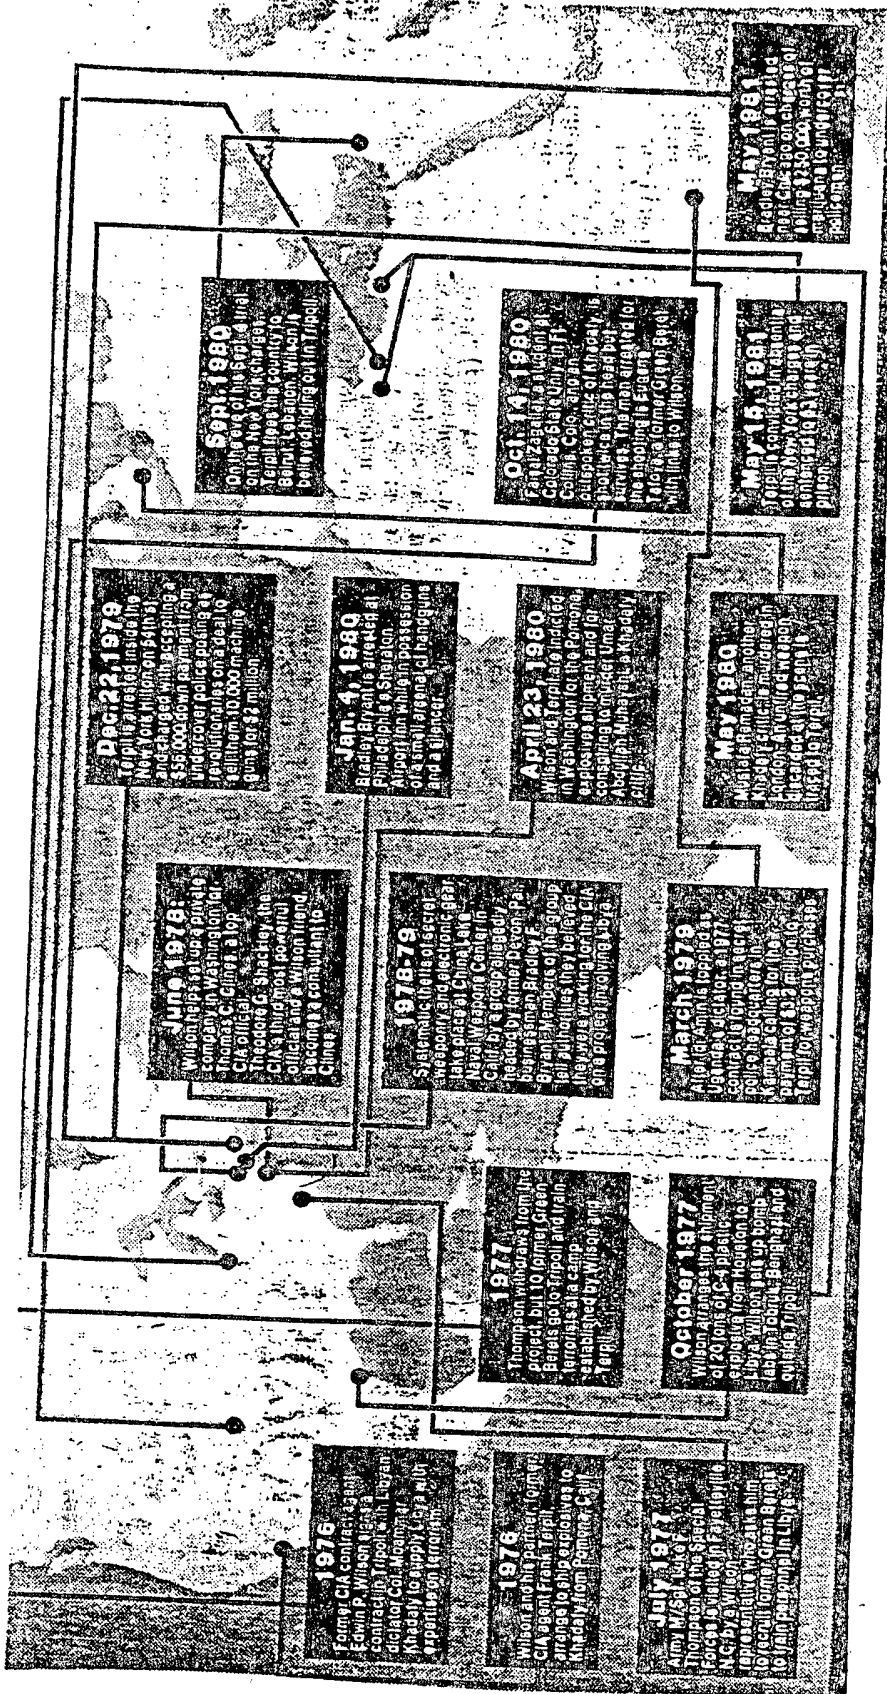 1976
Former CIA contract agent
Edwin P. Wilson signs a
contract in Tripoli with Libyan
dictator Col. Moammar
Khadafy to supply Libya with
expertise on terrorism.
1976
Wilson and his partner, former
CIA agent Frank Terpil,
arrange to ship explosives to
Khadafy from Pomona, Calif.
July 1977
Army M/Sgt. Luke F.
Thompson of the Special
Forces is invited in Fayetteville,
N.C., by a Wilson
representative who asks him
to recruit former Green Berets
to train personnel in Libya.
1977
Thompson withdraws from the
project, but 10 former Green
Berets go to Tripoli and train
terrorists at a camp
established by Wilson and
Terpil.
October 1977
Wilson arranges the shipment
of 20 tons of C-4 plastic
explosive from Houston to
Libya. Wilson sets up bomb
labs in Tobruk, Benghazi and
outside Tripoli.
June 1978
Wilson helps set up a private
company in Washington for
Thomas G. Clines, a top
CIA official.
Theodore G. Shackley, the
CIA's third most powerful
official and a Wilson friend,
becomes a consultant to
Clines.
1978-79
Systematic thefts of secret
weaponry and electronic gear
take place at China Lake
Naval Weapons Center in
Calif. by a group allegedly
headed by former Devon, Pa.
businessman Bradley F.
Bryant. Members of the group
tell authorities they believed
they were working for the CIA
on a project involving Libya.
March 1979
After Idi Amin is toppled as
Uganda's dictator, a 1977
contract is found in secret
police headquarters in
Kampala calling for the
payment of $3.3 million to
Terpil for weapons purchases.
Dec. 22, 1979
Terpil is arrested inside the
New York Hilton on 54th St.
and charged with accepting a
$56,000 down payment from
undercover police posing as
revolutionaries on a deal to
sell them 10,000 machine
guns for $2 million.
Jan. 4, 1980
Bradley Bryant is arrested at
Philadelphia's Sheraton
Airport Inn while in possession
of a small arsenal of handguns
and a silencer.
April 23, 1980
Wilson and Terpil are indicted
in Washington for the Pomona
explosives shipment and for
conspiring to murder Umar
Abdullah Muhayshi, a Khadafy
critic.
May 1980
Mustafa Ramadan, another
Khadafy critic, is murdered in
London. An unfired weapon
discarded by his assailant is
traced to Terpil.
Sept. 1980
On the eve of his Sept. 8 trial
on the New York charges,
Terpil flees the country to
Beirut, Lebanon. Wilson is
believed hiding out in Tripoli.
Oct. 14, 1980
Faisal Zagallai, a student at
Colorado State Univ. in Ft.
Collins, Colo., who is an
outspoken critic of Khadafy, is
shot twice in the head but
survives. The man arrested for
the shooting is Eugene
Tafoya, a former Green Beret
with links to Wilson.
May 15, 1981
Terpil is convicted in absentia
of the New York charges and
sentenced to 53 years in
prison.
May 1981
Bradley Bryant is arrested
near Chicago on charges of
selling $250,000 worth of
marijuana to undercover
policemen.